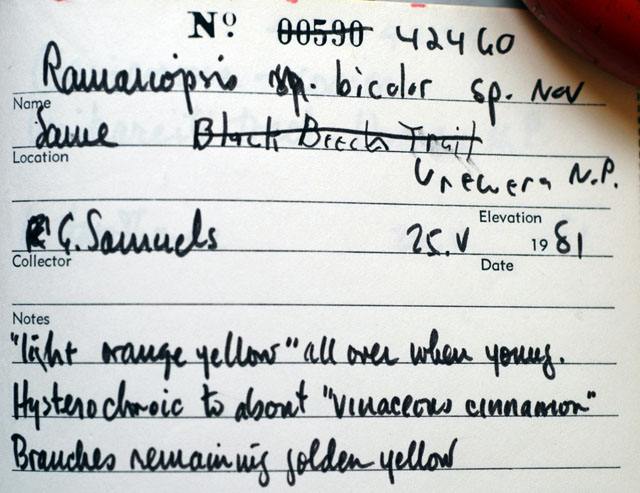 Nº 00590 42460
Ramariopsis sp. bicolor sp. nov
Name
Same Black Beech Trail
Location
Urewera N.P.
Elevation
G. Samuels 25.V 1981
Collector Date
Notes
"light orange yellow" all over when young.
Hysterochroic to about "vinaceous cinnamon"
Branches remaining golden yellow